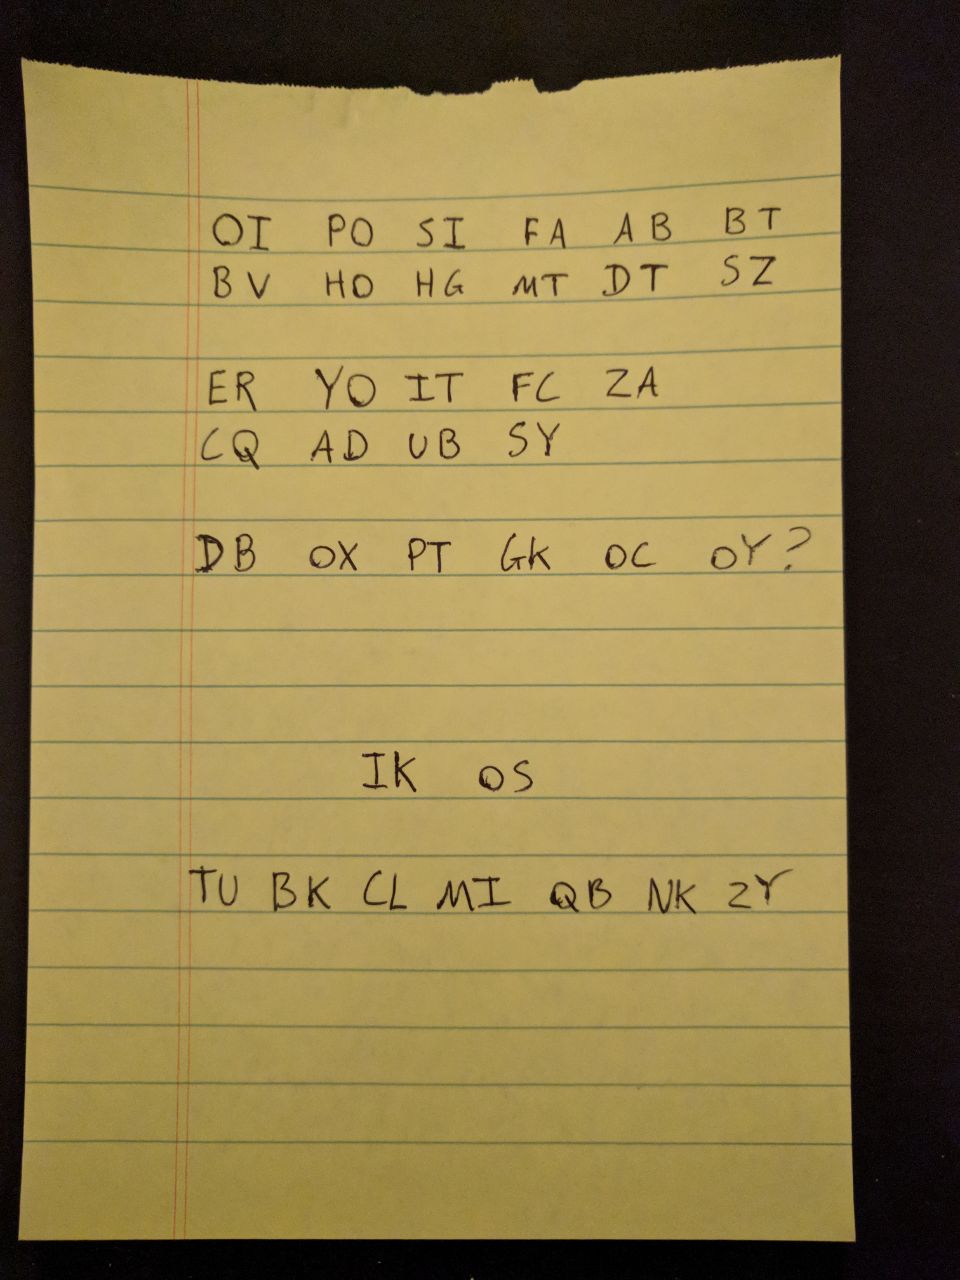 OI PO SI FA AB BT
BV HO HG MT DT SZ
ER YO IT FC ZA
CQ AD UB SY
DB OX PT GK OC OY?
IK OS
TU BK CL MI QB NK ZY